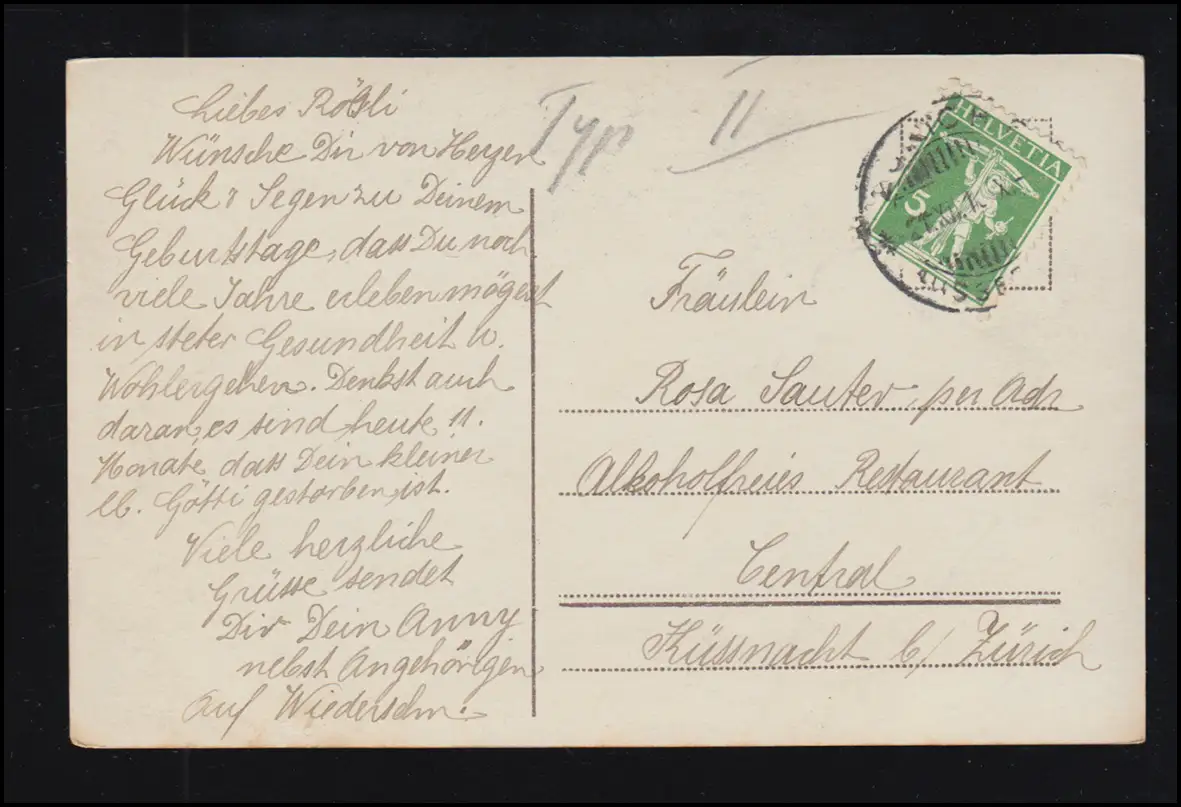 Liebes Rösli
Wünsche Dir von Herzen
Glück & Segen zu Deinem
Geburtstage, dass Du noch
viele Jahre erleben mögest
in steter Gesundheit u.
Wohlergehen. Denkst auch
daran, es sind heute 11.
Monate, dass Dein kleiner
lb. Götti gestorben ist.
Viele herzliche
Grüsse sendet
Dir Dein Anny
nebst Angehörigen
Auf Wiedersehn.
Typ II
HELVETIA
5
Fräulein
Rosa Sauter, per Adr
Alkoholfreies Restaurant
Central
Küssnacht b/ Zürich